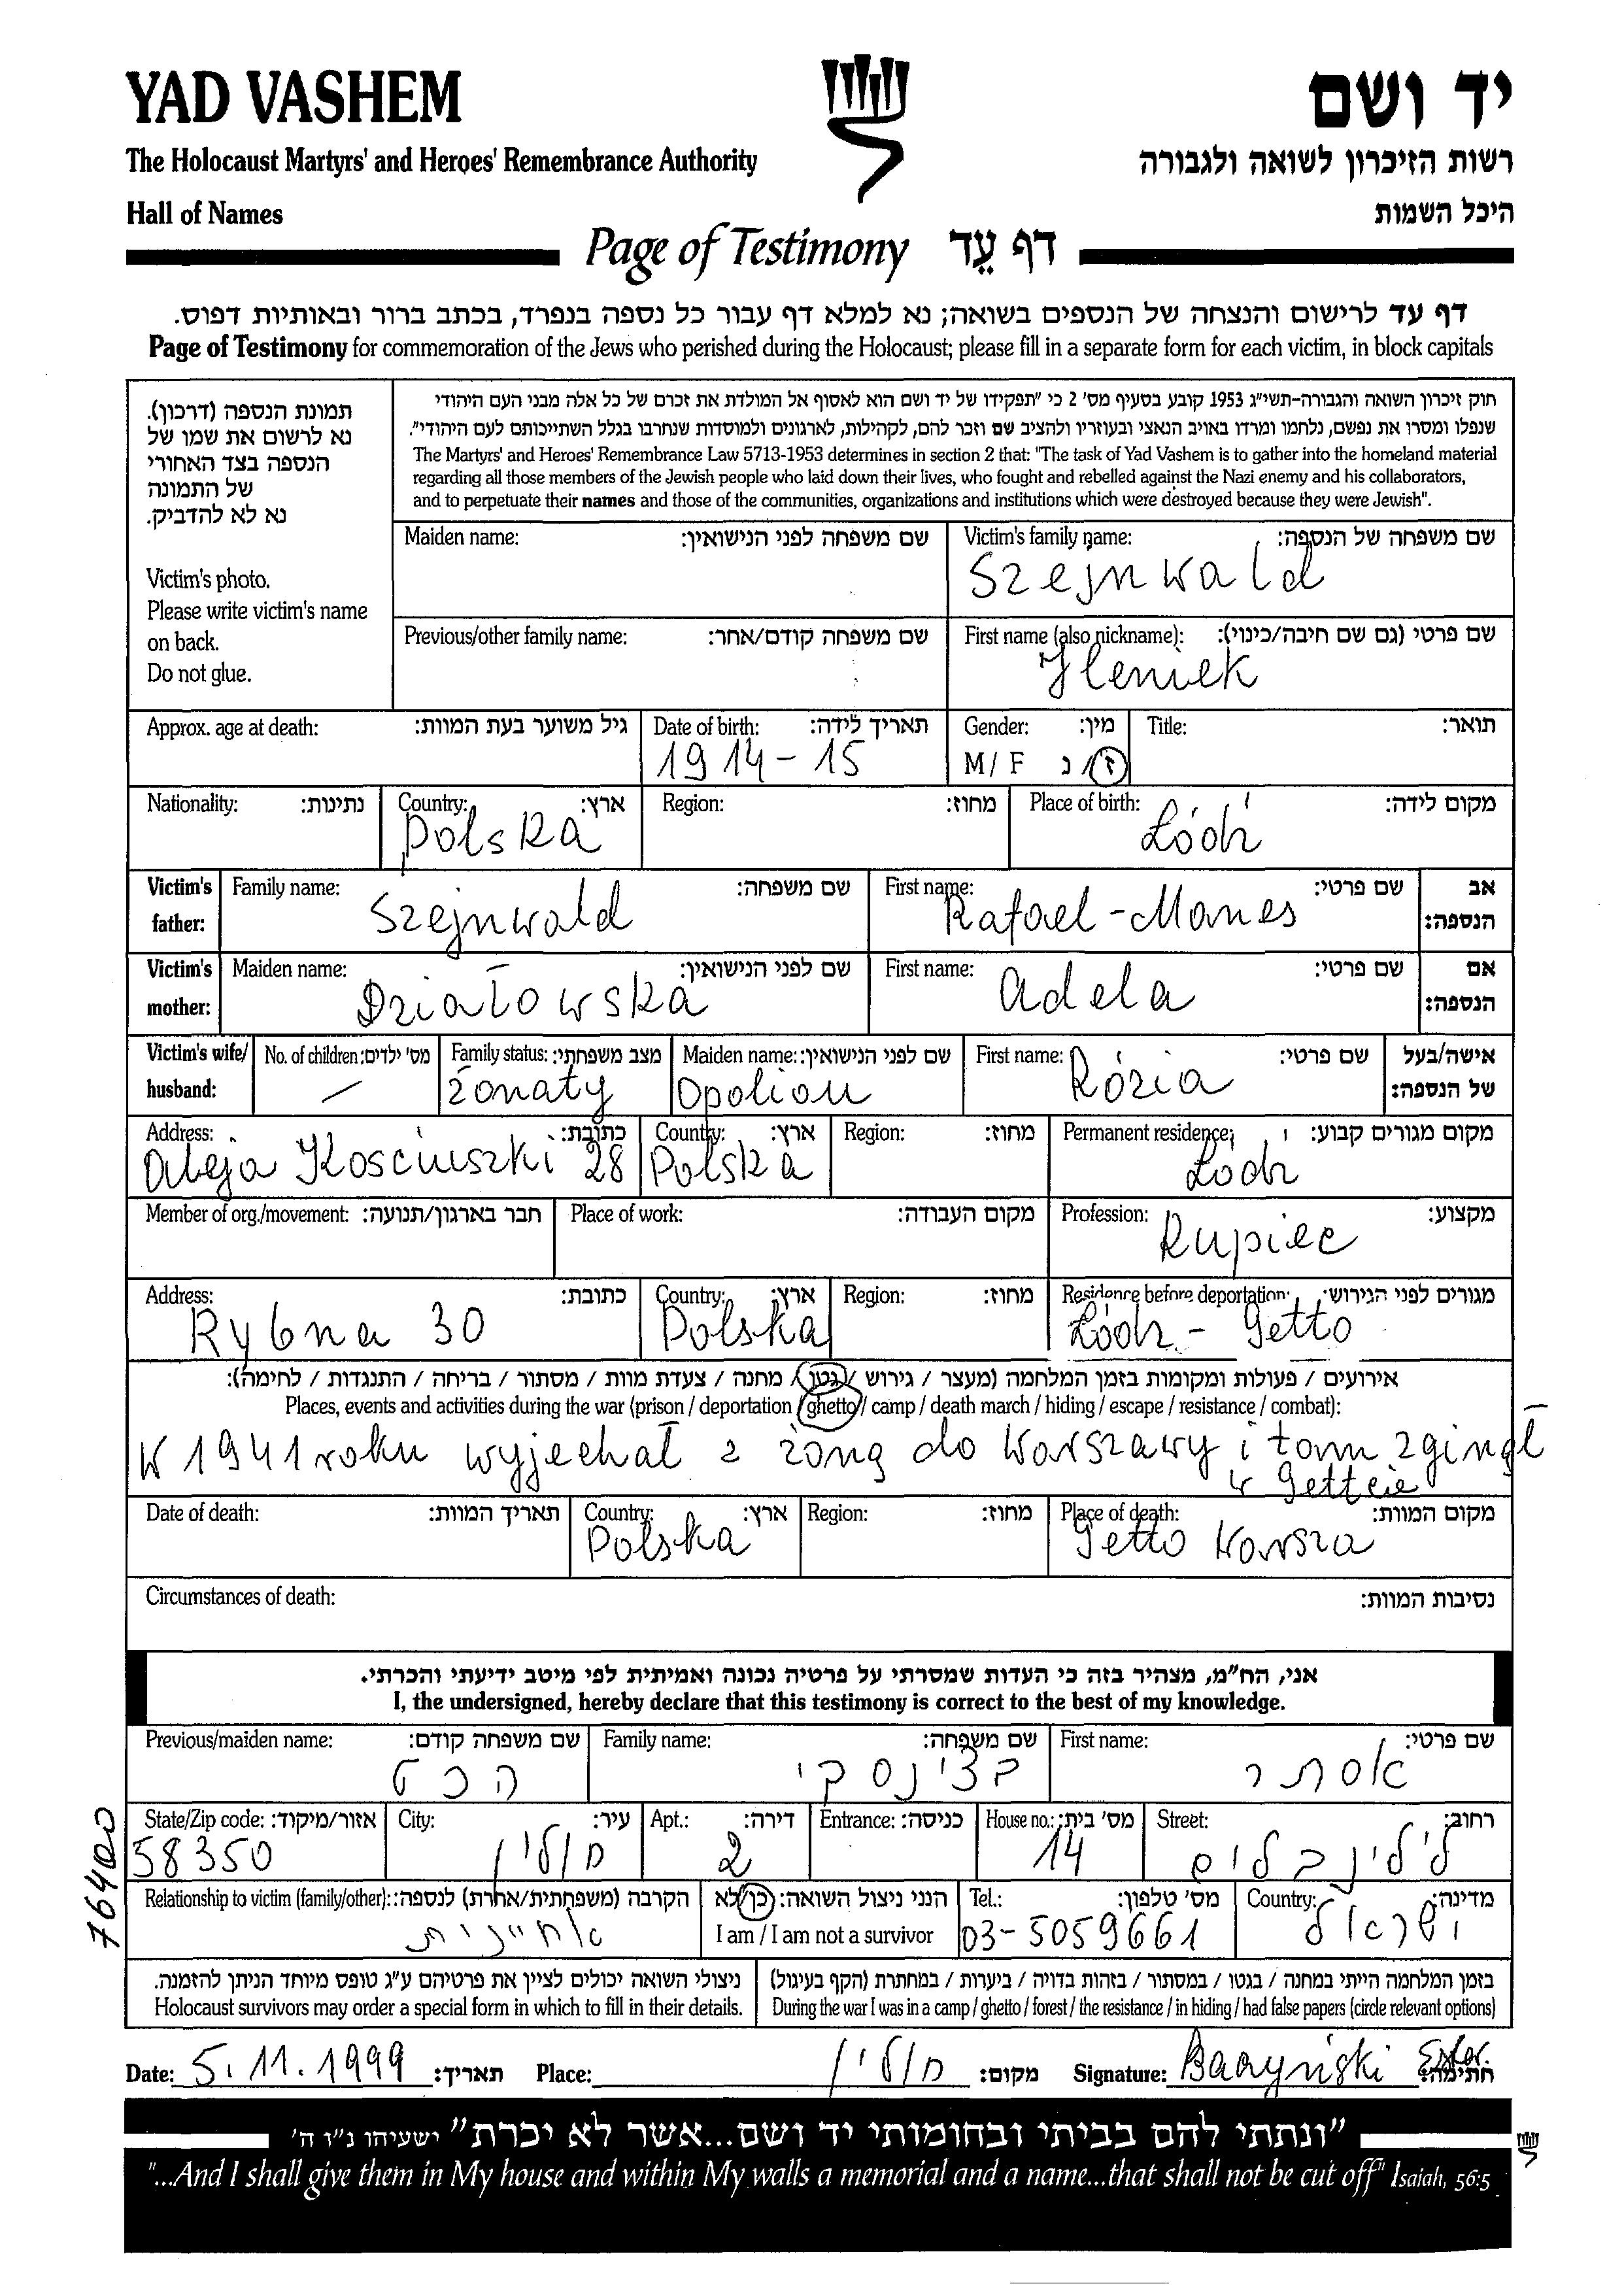 YAD VASHEM
יד ושם
The Holocaust Martyrs' and Heroes' Remembrance Authority
רשות הזיכרון לשואה ולגבורה
Hall of Names
היכל השמות
Page of Testimony דף עֵד
דף עד לרישום והנצחה של הנספים בשואה; נא למלא דף עבור כל נספה בנפרד, בכתב ברור ובאותיות דפוס.
Page of Testimony for commemoration of the Jews who perished during the Holocaust; please fill in a separate form for each victim, in block capitals
תמונת הנספה (דרכון).
נא לרשום את שמו של
הנספה בצד האחורי
של התמונה
נא לא להדביק.
Victim's photo.
Please write victim's name
on back.
Do not glue.
חוק זיכרון השואה והגבורה-תשי"ג 1953 קובע בסעיף מס' 2 כי "תפקידו של יד ושם הוא לאסוף אל המולדת את זכרם של כל אלה מבני העם היהודי
שנפלו ומסרו את נפשם, נלחמו ומרדו באויב הנאצי ובעוזריו ולהציב שם וזכר להם, לקהילות, לארגונים ולמוסדות שנחרבו בגלל השתייכותם לעם היהודי".
The Martyrs' and Heroes' Remembrance Law 5713-1953 determines in section 2 that: "The task of Yad Vashem is to gather into the homeland material
regarding all those members of the Jewish people who laid down their lives, who fought and rebelled against the Nazi enemy and his collaborators,
and to perpetuate their names and those of the communities, organizations and institutions which were destroyed because they were Jewish".
Maiden name: שם משפחה לפני הנישואין:
Victim's family name: שם משפחה של הנספה:
Szejnwald
Previous/other family name: שם משפחה קודם/אחר:
First name (also nickname): שם פרטי (גם שם חיבה/כינוי):
Heniek
Approx. age at death: גיל משוער בעת המוות:
Date of birth: תאריך לידה:
1914-15
Gender: מין:
M/F ז/נ
Title: תואר:
Nationality: נתינות:
Country: ארץ:
Polska
Region: מחוז:
Place of birth: מקום לידה:
Łódź
Victim's father:
Family name: שם משפחה:
Szejnwald
First name: שם פרטי:
Rafael-Manes
אב הנספה:
Victim's mother:
Maiden name: שם לפני הנישואין:
Działowska
First name: שם פרטי:
Adela
אם הנספה:
Victim's wife/ husband:
No. of children: מס' ילדים:
—
Family status: מצב משפחתי:
żonaty
Maiden name: שם לפני הנישואין:
Opolion
First name: שם פרטי:
Rózia
אישה/בעל של הנספה:
Address: כתובת:
Aleja Kościuszki 28
Country: ארץ:
Polska
Region: מחוז:
Permanent residence: מקום מגורים קבוע:
Łódź
Member of org./movement: חבר בארגון/תנועה:
Place of work: מקום העבודה:
Profession: מקצוע:
Kupiec
Address: כתובת:
Rybna 30
Country: ארץ:
Polska
Region: מחוז:
Residence before deportation: מגורים לפני הגירוש:
Łódź - Getto
אירועים / פעולות ומקומות בזמן המלחמה (מעצר / גירוש / גטו / מחנה / צעדת מוות / מסתור / בריחה / התנגדות / לחימה):
Places, events and activities during the war (prison / deportation / ghetto / camp / death march / hiding / escape / resistance / combat):
W 1941 roku wyjechał z żoną do Warszawy i tam zginął
w Gettcie
Date of death: תאריך המוות:
Country: ארץ:
Polska
Region: מחוז:
Place of death: מקום המוות:
Getto Warsza
Circumstances of death: נסיבות המוות:
אני, הח"מ, מצהיר בזה כי העדות שמסרתי על פרטיה נכונה ואמיתית לפי מיטב ידיעתי והכרתי.
I, the undersigned, hereby declare that this testimony is correct to the best of my knowledge.
Previous/maiden name: שם משפחה קודם:
הכט
Family name: שם משפחה:
בצינסקי
First name: שם פרטי:
אסתר
State/Zip code: אזור/מיקוד:
58350
City: עיר:
חולון
Apt.: דירה:
2
Entrance: כניסה:
House no.: מס' בית:
14
Street: רחוב:
לילינבלום
Relationship to victim (family/other): הקרבה (משפחתית/אחרת) לנספה:
אחיינית
הנני ניצול השואה: כן/לא
I am / I am not a survivor
Tel.: מס' טלפון:
03-5059661
Country: מדינה:
ישראל
76400
ניצולי השואה יכולים לציין את פרטיהם ע"ג טופס מיוחד הניתן להזמנה.
Holocaust survivors may order a special form in which to fill in their details.
בזמן המלחמה הייתי במחנה / בגטו / במסתור / בזהות בדויה / ביערות / במחתרת (הקף בעיגול)
During the war I was in a camp / ghetto / forest / the resistance / in hiding / had false papers (circle relevant options)
Date: 5.11.1999 תאריך: Place: חולון מקום: Signature: Baczyński Ester חתימה:
"ונתתי להם בביתי ובחומותי יד ושם...אשר לא יכרת" ישעיהו נ"ו ה'
"...And I shall give them in My house and within My walls a memorial and a name...that shall not be cut off" Isaiah, 56:5